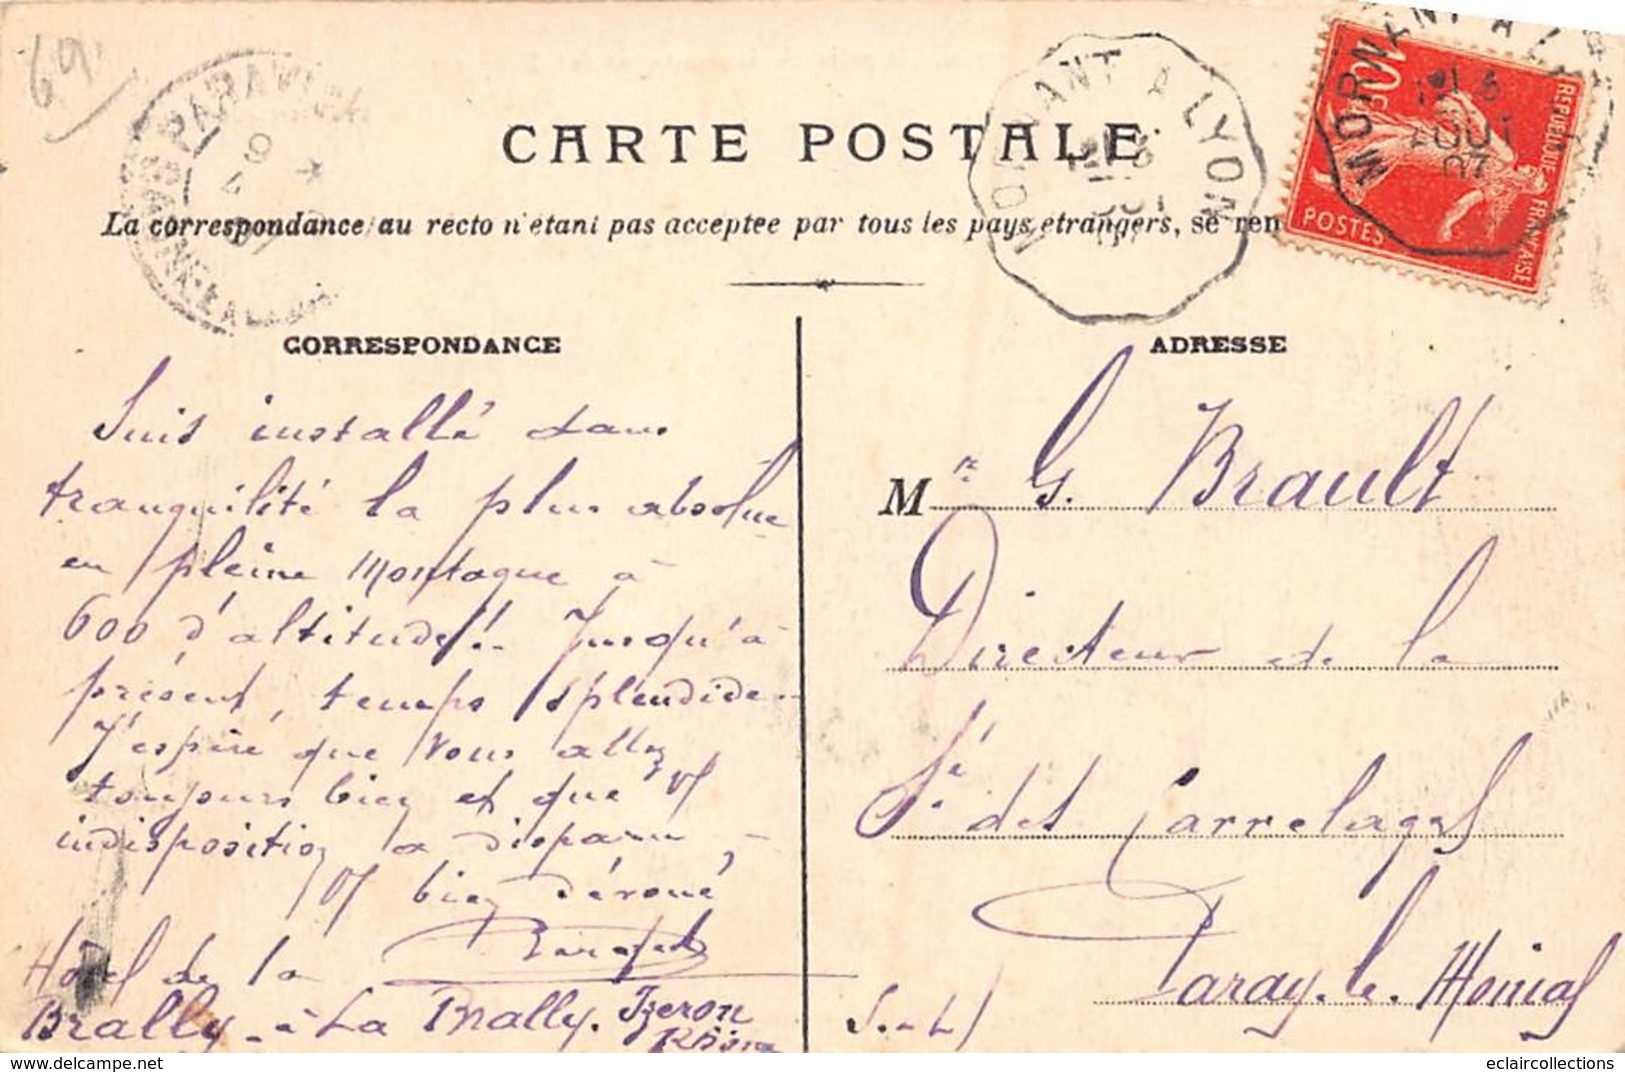 69
PARAY
9 *
4
07
SAÔNE-&-L
CARTE POSTALE
MORNANT A LYON
MORNANT A LY
AOUT
07
10c
REPUBLIQUE FRANÇAISE
POSTES
La correspondance au recto n'étant pas acceptée par tous les pays etrangers, se ren
CORRESPONDANCE
Suis installé dans
tranquilité la plus absolue
en pleine montagne à
600 d'altitude! Jusqu'à
présent, temps splendide
J'espère que vous allez
toujours bien et que vf
indisposition a disparu,
Vf bien dévoué
Hotel de la
Brally - à La Brally. Yzeron
Rhône
ADRESSE
Mr G. Brault
Directeur de la
Sté des Carrelages
Paray-le-Monial
S-L
eclaircollections